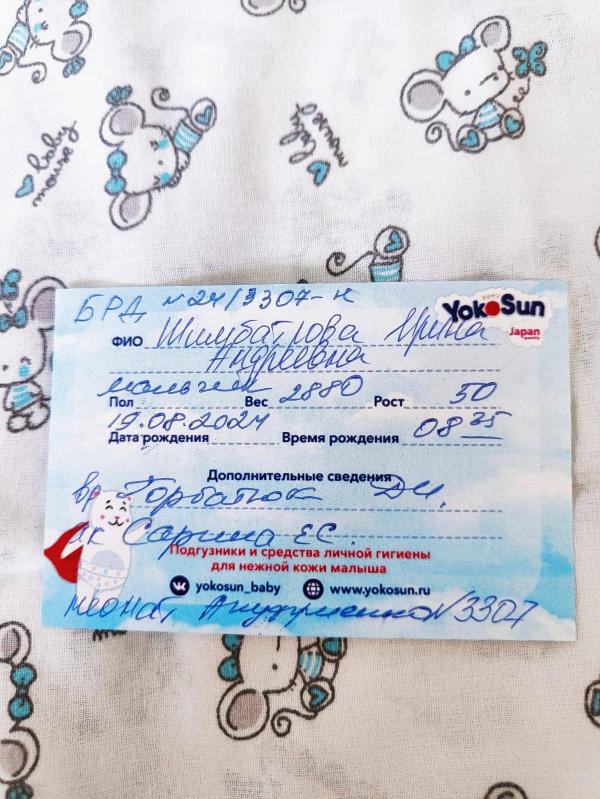 baby mouse
baby mouse
БРД № 24/3307-н
YokoSun
Japan quality
ФИО Шимбатрова Ирина
Андреевна
мальчик 2880 50
Пол Вес Рост
19.08.2024 08 35
Дата рождения Время рождения
Дополнительные сведения
вр Горбатюк Д.И.
ак Сарина Е.С.
Подгузники и средства личной гигиены
для нежной кожи малыша
yokosun_baby www.yokosun.ru
неонат N3307